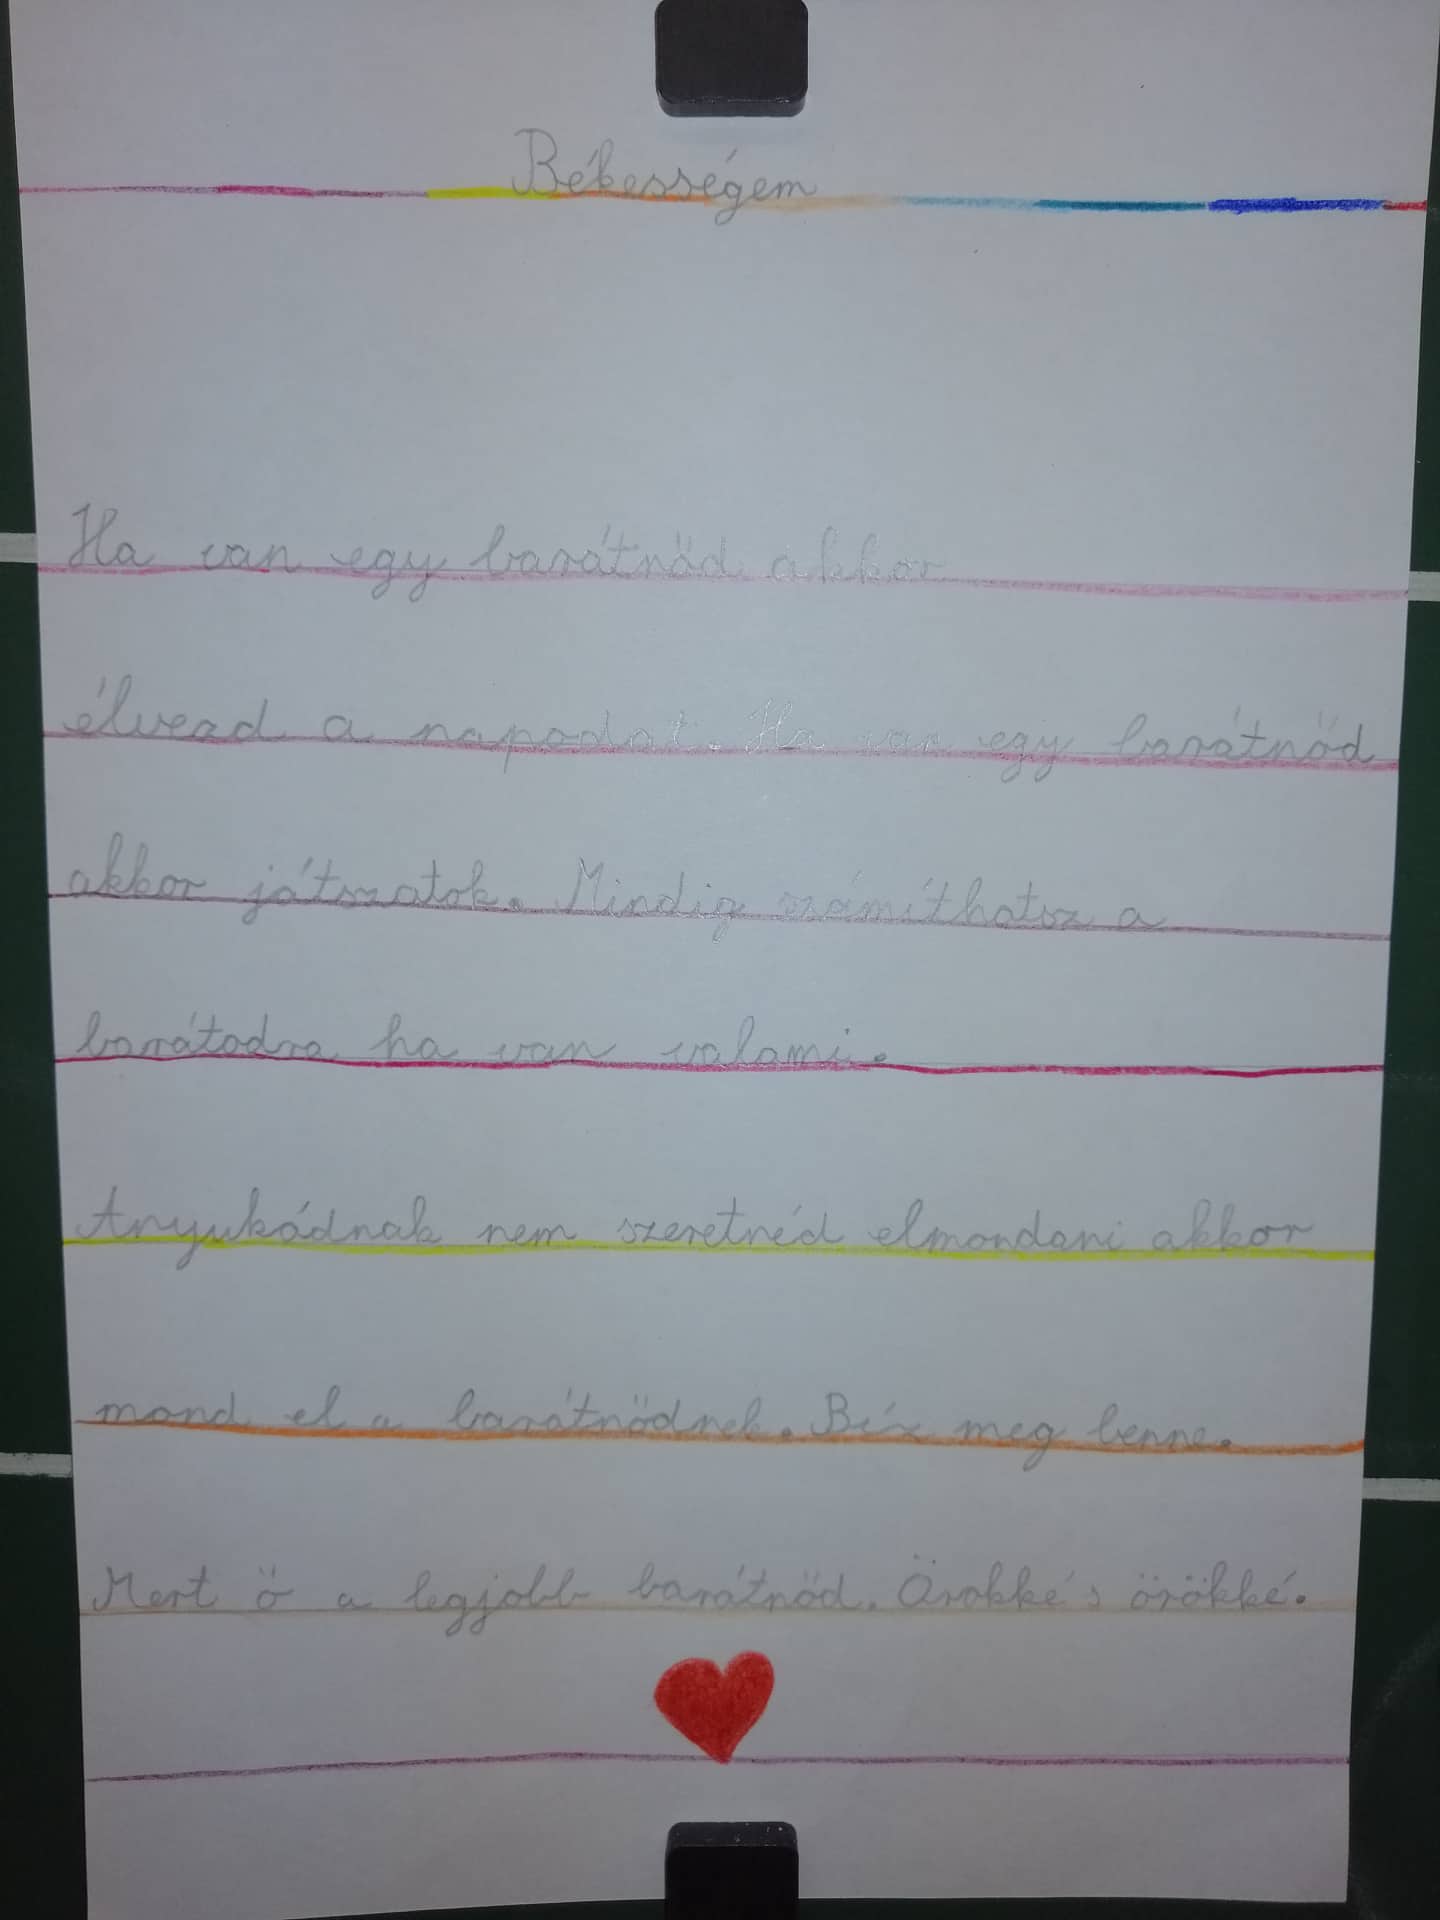 Békességem
Ha van egy barátnőd akkor
élvezd a napodat. Ha van egy barátnőd
akkor játszatok. Mindig számíthatsz a
barátodra ha van valami.
Anyukádnak nem szeretnéd elmondani akkor
mond el a barátnődnek. Béz meg benne.
Mert ő a legjobb barátnőd. Örökké s örökké.